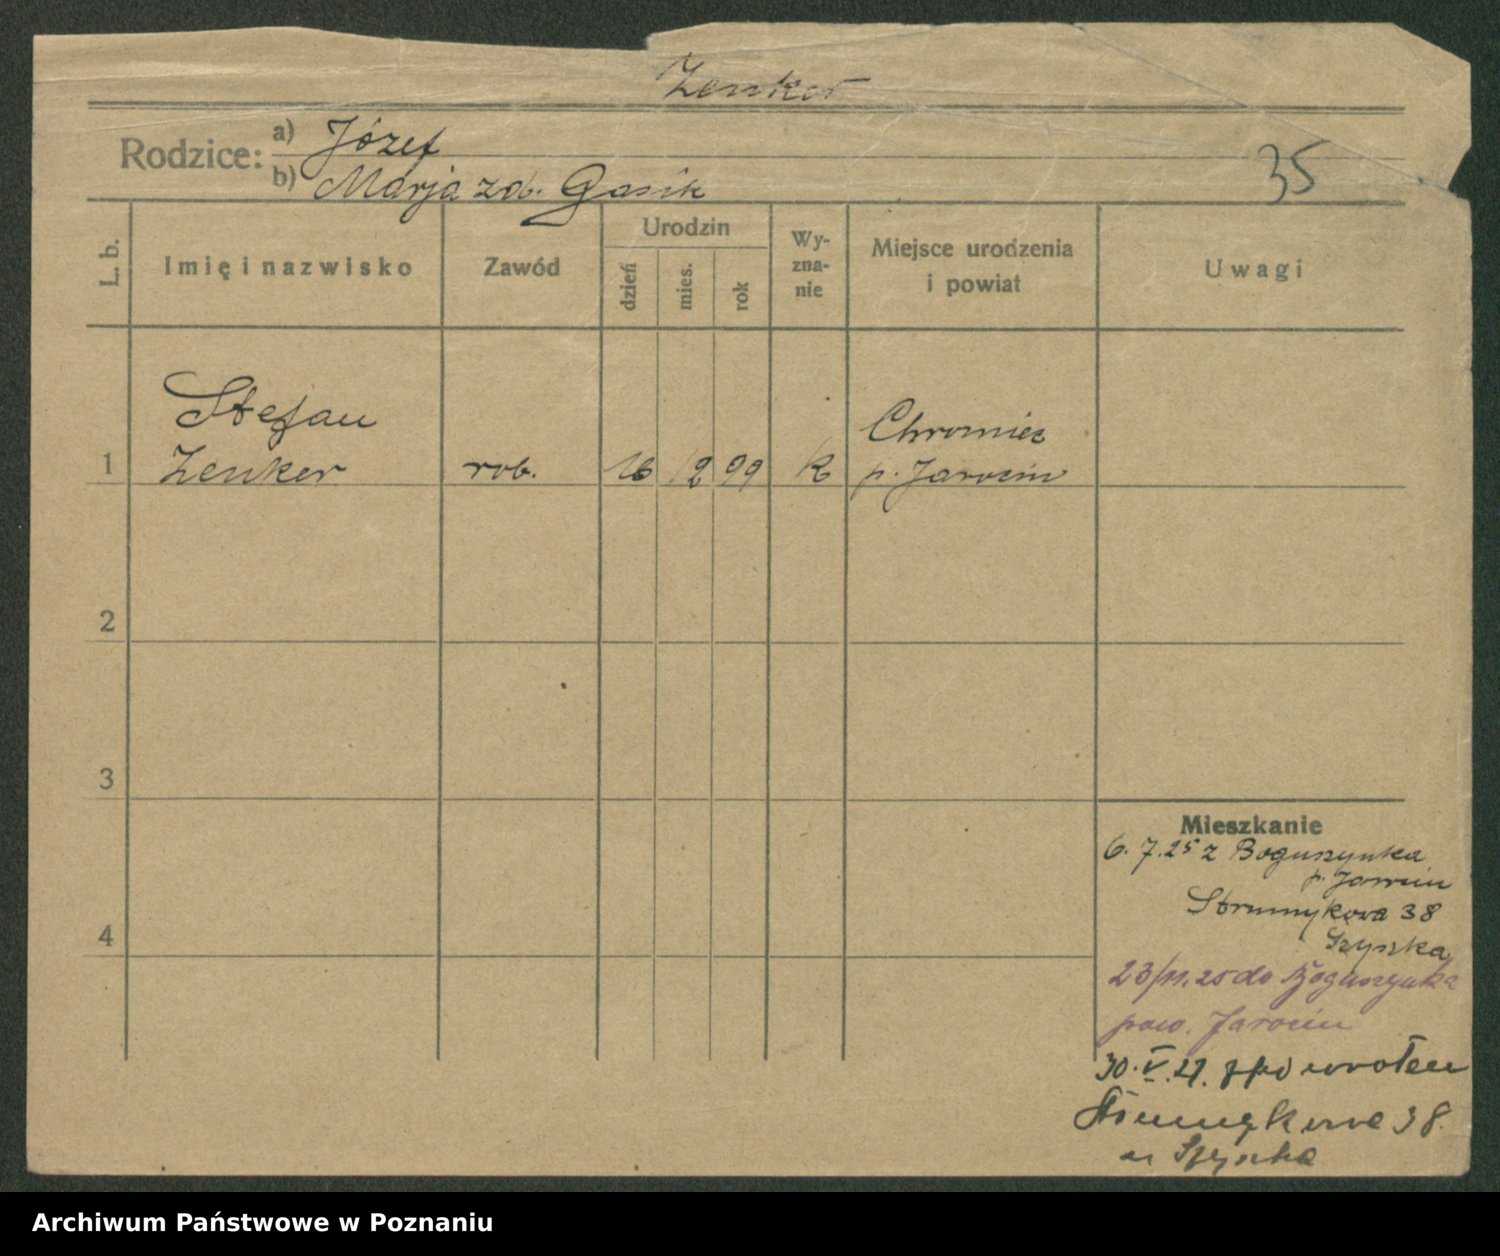 Zenker
Rodzice: a) Józef
b) Marja zd. Gasik
35
L. b.
Imię i nazwisko
Zawód
Urodzin
dzień
mies.
rok
Wy-
zna-
nie
Miejsce urodzenia
i powiat
Uwagi
Stefan
1 Zenker
rob.
16
12
99
k
Chromiec
p. Jarocin
2
3
4
Mieszkanie
6. 7. 25 z Boguszynka
p. Jarocin
Strumykowa 38
23/11. 25 do Boguszynka
pow. Jarocin
30. V. 27. z powrotem
Strumykowa 38.
u
Archiwum Państwowe w Poznaniu